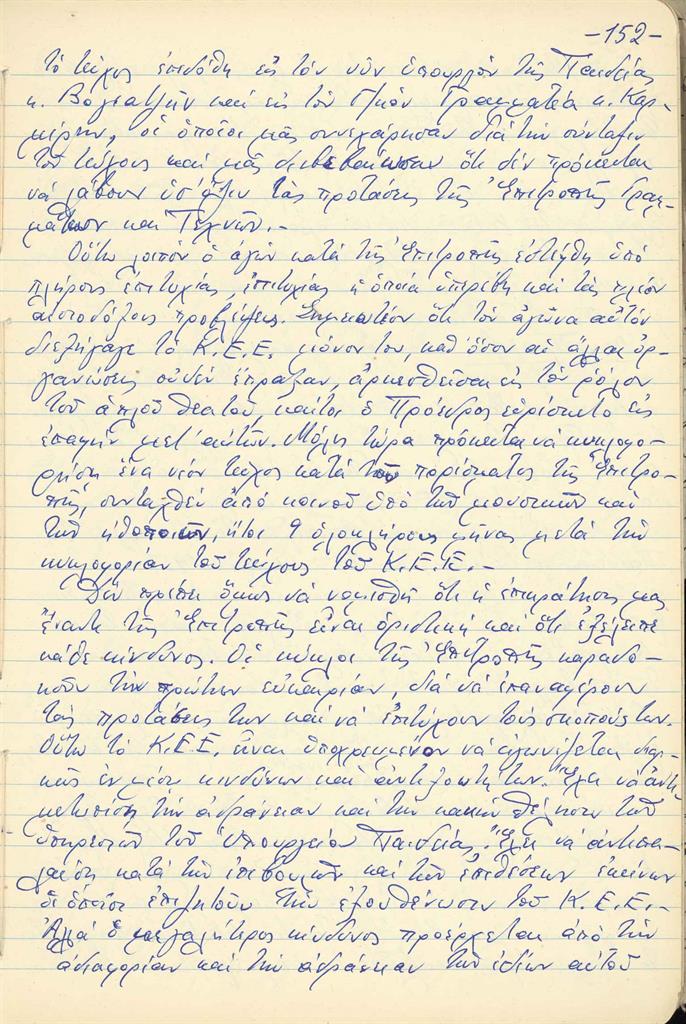 -152-
τό τεῦχος ἐπεδόθη εἰς τόν νῦν ὑπουργόν τῆς Παιδείας
κ. Βογιατζῆν καί εἰς τόν Γ/κόν Γραμματέα κ. Καρ-
μίρην, οἱ ὁποῖοι μᾶς συνεχάρησαν διά τήν σύνταξιν
τοῦ τεύχους καί μᾶς διεβεβαίωσαν ὅτι δέν πρόκειται
νά λάβουν ὑπ' ὄψιν τάς προτάσεις τῆς Ἐπιτροπῆς Γραμ-
μάτων καί Τεχνῶν.-
Οὕτω λοιπόν ὁ ἀγών κατά τῆς Ἐπιτροπῆς ἐστέφθη ὑπό
πλήρους ἐπιτυχίας, ἐπιτυχίας ἡ ὁποία ὑπερέβη καί τάς πλέον
αἰσιοδόξους προβλέψεις. Σημειωτέον ὅτι τόν ἀγῶνα αὐτόν
διεξήγαγε τό Κ.Ε.Ε. μόνον του, καθ' ὅσον αἱ ἄλλαι ὀρ-
γανώσεις οὐδέν ἔπραξαν, ἀρκεσθεῖσαι εἰς τόν ρόλον
τοῦ ἁπλοῦ θεατοῦ, καίτοι ὁ Πρόεδρος εὑρίσκετο εἰς
ἐπαφήν μετ' αὐτῶν. Μόλις τώρα πρόκειται νά κυκλοφο-
ρήση ἕνα νέον τεῦχος κατά τοῦ πορίσματος τῆς Ἐπιτρο-
πῆς, συνταχθέν ἀπό κοινοῦ ὑπό τῶν μουσικῶν καί
τῶν ἠθοποιῶν, ἤτοι 9 ὁλοκλήρους μῆνας μετά τήν
κυκλοφορίαν τοῦ τεύχους τοῦ Κ.Ε.Ε.-
Δέν πρέπει ὅμως νά νομισθῆ ὅτι ἡ ἐπικράτησίς μας
ἔναντι τῆς Ἐπιτροπῆς εἶναι ὁριστική καί ὅτι ἐξέλειπε
κάθε κίνδυνος. Οἱ κύκλοι τῆς Ἐπιτροπῆς καραδο-
κοῦν τήν πρώτην εὐκαιρίαν, διά νά ἐπαναφέρουν
τάς προτάσεις των καί νά ἐπιτύχουν τούς σκοπούς των.
Οὕτω τό Κ.Ε.Ε. εἶναι ὑποχρεωμένον νά ἀγωνίζεται διαρ-
κῶς ἐν μέσω κινδύνων καί ἀντιξοωτήτων. Ἔχει νά ἀντι-
μετωπίση τήν ἀδράνειαν καί τήν κακήν θέλησιν τῶν
ὑπηρεσιῶν τοῦ Ὑπουργείου Παιδείας. Ἔχει νά ἀντιπα-
λαίση κατά τῶν ἐπιβουλῶν καί τῶν ἐπιθέσεων ἐκείνων
οἱ ὁποῖοι ἐπιζητοῦν τήν ἐξουθένωσιν τοῦ Κ.Ε.Ε.-
Ἀλλά ὁ μεγαλύτερος κίνδυνος προέρχεται ἀπό τήν
ἀδιαφορίαν καί τήν ἀδράνειαν τῶν ἰδίων αὐτοῦ